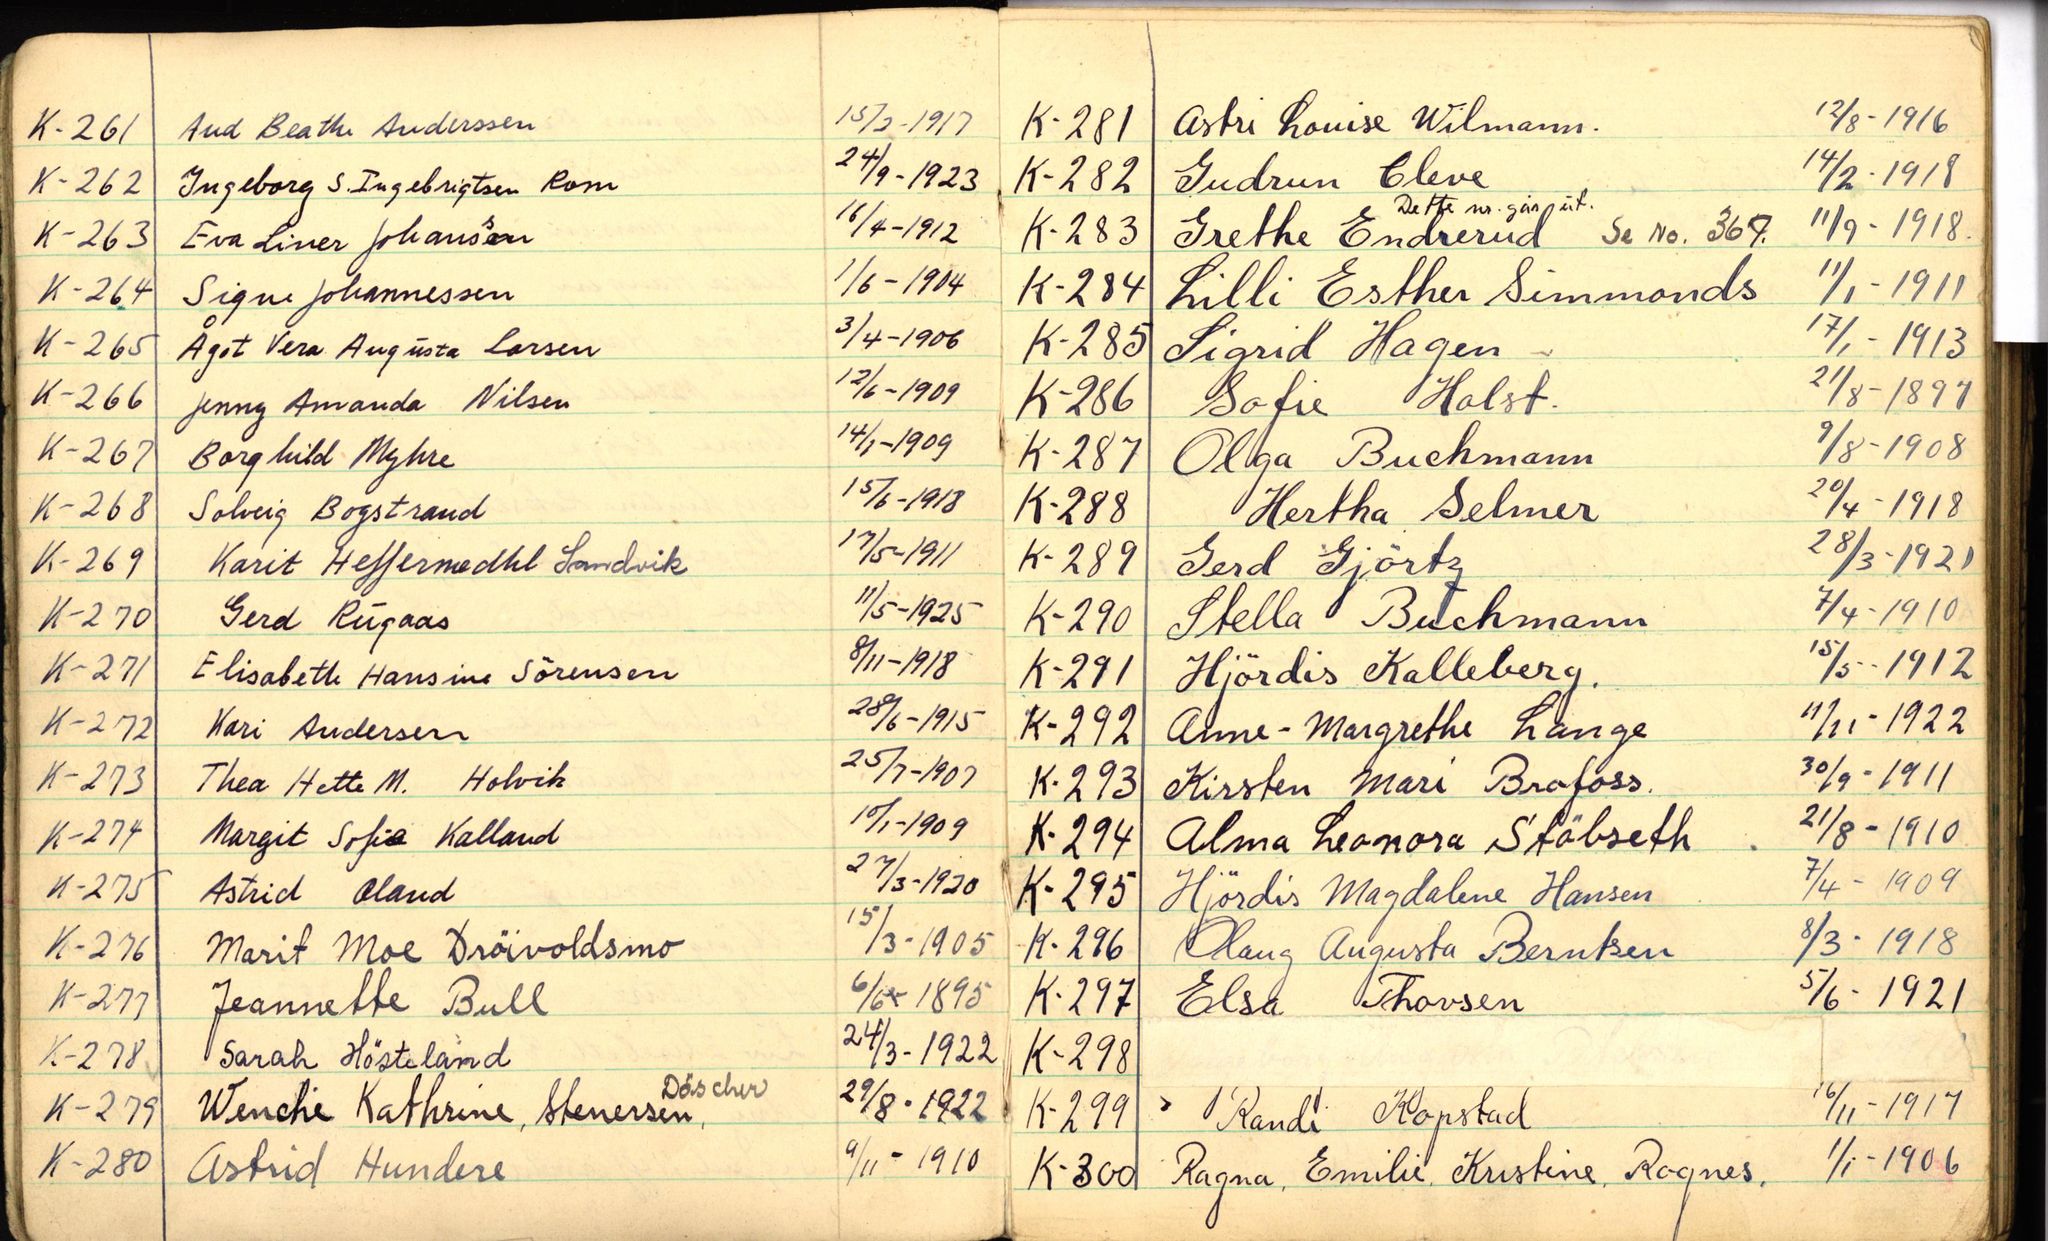 K-261 Aud Beathe Anderssen 15/2-1917
K-262 Ingeborg S. Ingebrigtsen Rom 24/9-1923
K-263 Eva Liner Johansen 16/4-1912
K-264 Signe Johannessen 1/6-1904
K-265 Ågot Vera Augusta Larsen 3/4-1906
K-266 Jenny Amanda Nilsen 12/6-1909
K-267 Borghild Myhre 14/1-1909
K-268 Solveig Bogstrand 15/6-1918
K-269 Karit Heffermedhl Sandvik 17/5-1911
K-270 Gerd Rügaas 11/5-1925
K-271 Elisabeth Hansine Sörensen 8/11-1918
K-272 Kari Andersen 28/6-1915
K-273 Thea Hette M. Holvik 25/7-1907
K-274 Margit Sofie Kalland 10/1-1909
K-275 Astrid Oland 27/3-1920
K-276 Marit Moe Dröivoldsmo 15/3-1905
K-277 Jeannette Bull 6/6-1895
K-278 Sarah Hösteland 24/3-1922
Döscher
K-279 Wenche Kathrine, Stenersen, 29/8-1922
K-280 Astrid Hundere 9/11-1910
K-281 Astri Louise Wilmann. 12/8-1916
K-282 Gudrun Cleve 14/2-1918
Dette nr. går üt.
K-283 Grethe Endrerud Se No. 367. 11/9-1918.
K-284 Lilli Esther Simmonds 11/1-1911
K-285 Sigrid Hagen 17/1-1913
K-286 Sofie Holst. 21/8-1897
K-287 Olga Buchmann 9/8-1908
K-288 Hertha Selmer 20/4-1918
K-289 Gerd Gjörtz 28/3-1921
K-290 Stella Buchmann 7/4-1910
K-291 Hjördis Kalleberg. 15/5-1912
K-292 Anne-Margrethe Lange 11/11-1922
K-293 Kirsten Mari Brofoss. 30/9-1911
K-294 Alma Leonora Stöbseth 21/8-1910
K-295 Hjördis Magdalene Hansen 7/4-1909
K-296 Olaug Augusta Berntsen 8/3-1918
K-297 Elsa Thovsen 5/6-1921
K-298
K-299 Randi Kopstad 16/11-1917
K-300 Ragna, Emilie, Kristine, Rognes. 1/1-1906